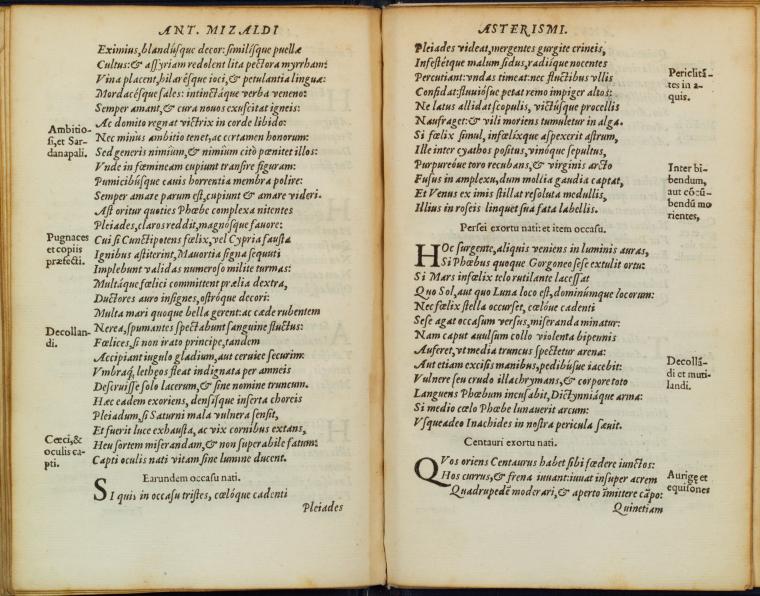 ANT. MIZALDI
Eximius, blandúsque decor: similísque puellæ
Cultus: & assyriam redolent lita pectora myrrham:
Vina placent, hilarésque ioci, & petulantia linguæ:
Mordacésque sales: intinctáque verba veneno:
Semper amant, & cura nouos exuscitat igneis:
Ac domito regnat victrix in corde libido:
Ambitio-
si, et Sar-
danapali.
Nec minus ambitio tenet, ac certamen honorum:
Sed generis nimium, & nimium citò pœnitet illos:
Vnde in fœmineam cupiunt transire figuram:
Pumicibúsque cauis horrentia membra polire:
Semper amare parum est, cupiunt & amare videri.
Ast oritur quoties Phœbe complexa nitentes
Pleiades, claros reddit, magnósque fauore:
Pugnaces
et copiis
præfecti.
Cui si Cunctipotens fœlix, vel Cypria fausta
Ignibus astiterint, Mauortia signa sequuti
Implebunt validas numeroso milite turmas:
Multáque fœlici committent prælia dextra,
Ductores auro insignes, ostróque decori:
Multa mari quoque bella gerent: ac cæde rubentem
Decollan-
di.
Nerea, spumantes spectabunt sanguine fluctus:
Fœlices, si non irato principe, tandem
Accipiant iugulo gladium, aut ceruice securim:
Vmbráq, letheos fleat indignata per amneis
Deseruisse solo lacerum, & sine nomine truncum.
Hæc eadem exoriens, densisque inserta choreis
Pleiadum, si Saturni mala vulnera sensit,
Cœci, &
oculis ca-
pti.
Et fuerit luce exhausta, ac vix cornibus extans,
Heu sortem miserandam, & non superabile fatum:
Capti oculis nati vitam sine lumine ducent.
Earundem occasu nati.
SI quis in occasu tristes, cœlóque cadenti
Pleiades
ASTERISMI.
Pleiades videat, mergentes gurgite crineis,
Infestétque malum sidus, radiíque nocentes
Periclitā-
tes in a-
quis.
Percutiant: vndas timeat: nec fluctibus vllis
Confidat: fluuiósue petat remo impiger altos:
Ne latus allidat scopulis, victúsque procellis
Naufraget: & vili moriens tumuletur in alga.
Si fœlix simul, infœlixque aspexerit astrum,
Ille inter cyathos positus, vinóque sepultus,
Inter bi-
bendum,
aut cōcū-
bendū mo
rientes,
Purpureóue toro recubans, & virginis arcto
Fusus in amplexu, dum mollia gaudia captat,
Et Venus ex imis stillat resoluta medullis,
Illius in roseis linquet sua fata labellis.
Persei exortu nati: et item occasu.
HOc surgente, aliquis veniens in luminis auras,
Si Phœbus quoque Gorgoneo sese extulit ortu:
Si Mars infœlix telo rutilante lacessat
Quo Sol, aut quo Luna loco est, dominúmque locorum:
Nec fœlix stella occurset, cœlóue cadenti
Sese agat occasum versus, miseranda minatur:
Nam caput auulsum collo violenta bipennis
Auferet, vt media truncus spectetur arena:
Decollā-
di et muti-
landi.
Aut etiam excisis manibus, pedibúsue iacebit:
Vulnere seu crudo illachrymans, & corpore toto
Languens Phœbum incusabit, Dictynniáque arma:
Si medio cœlo Phœbe lunauerit arcum:
Vsqueadeo Inachides in nostra pericula sæuit.
Centauri exortu nati.
QVos oriens Centaurus habet sibi fœdere iunctos:
Aurigę et
equisones
Hos currus, & frena iuuant: iuuat insuper acrem
Quadrupedē moderari, & aperto īmittere cāpo:
Quinetiam